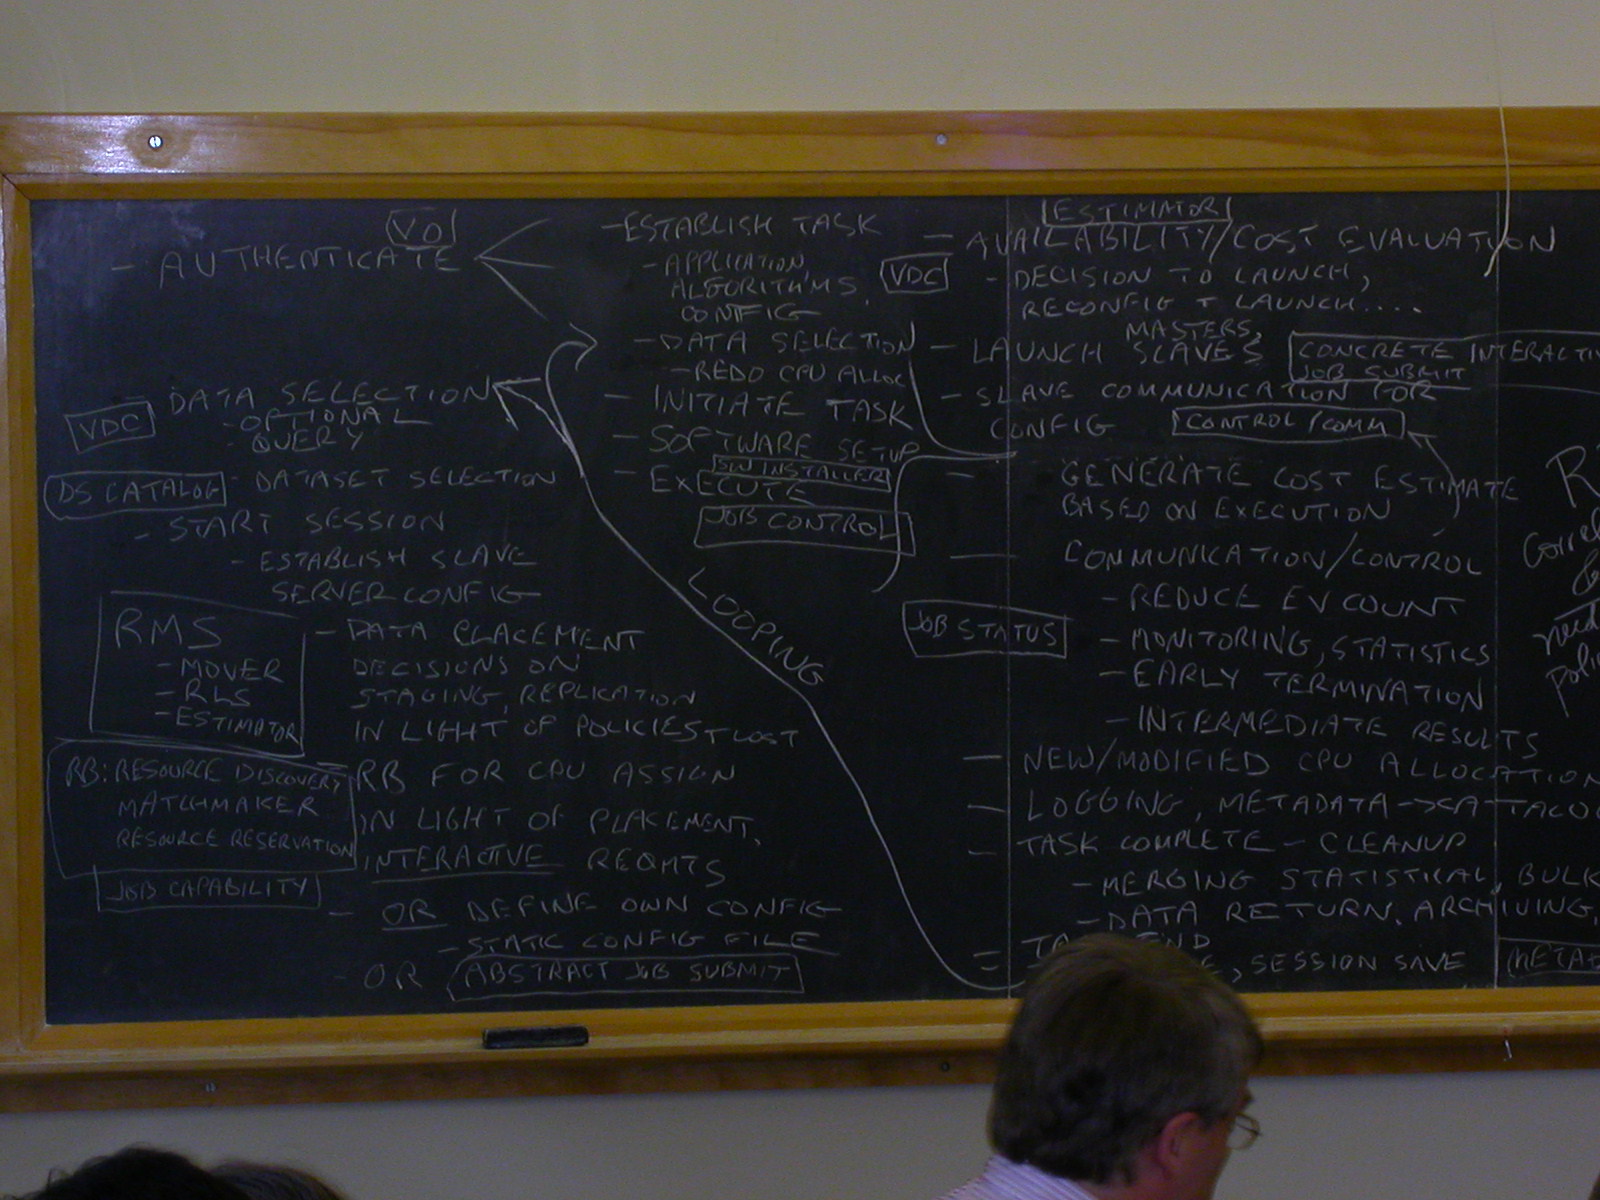 VO
- AUTHENTICATE
- DATA SELECTION
VDC
- OPTIONAL
- QUERY
DS CATALOG
- DATASET SELECTION
- START SESSION
- ESTABLISH SLAVE
SERVER CONFIG
RMS
- MOVER
- RLS
- ESTIMATOR
- DATA PLACEMENT
DECISIONS ON
STAGING, REPLICATION
IN LIGHT OF POLICIES + COST
RB: RESOURCE DISCOVERY
MATCHMAKER
RESOURCE RESERVATION
JOB CAPABILITY
- RB FOR CPU ASSIGN
IN LIGHT OF PLACEMENT,
INTERACTIVE REQMTS
- OR DEFINE OWN CONFIG
- STATIC CONFIG FILE
- OR ABSTRACT JOB SUBMIT
- ESTABLISH TASK
- APPLICATION,
ALGORITHMS,
CONFIG
- DATA SELECTION
- REDO CPU ALLOC
- INITIATE TASK
- SOFTWARE SETUP
SW INSTALLER
- EXECUTE
JOB CONTROL
LOOPING
ESTIMATOR
- AVAILABILITY/COST EVALUATION
VDC
- DECISION TO LAUNCH,
RECONFIG + LAUNCH....
MASTERS,
- LAUNCH SLAVES
CONCRETE INTERACTIV
JOB SUBMIT
- SLAVE COMMUNICATION FOR
CONFIG
CONTROL/COMM
- GENERATE COST ESTIMATE
BASED ON EXECUTION
- COMMUNICATION/CONTROL
- REDUCE EV COUNT
JOB STATUS
- MONITORING, STATISTICS
- EARLY TERMINATION
- INTERMEDIATE RESULTS
- NEW/MODIFIED CPU ALLOCATION
- LOGGING, METADATA ->
- TASK COMPLETE - CLEANUP
- MERGING STATISTICAL, BULK
- DATA RETURN, ARCHIVING,
END
, SESSION SAVE
METAD
R
Correl
&
need
poli